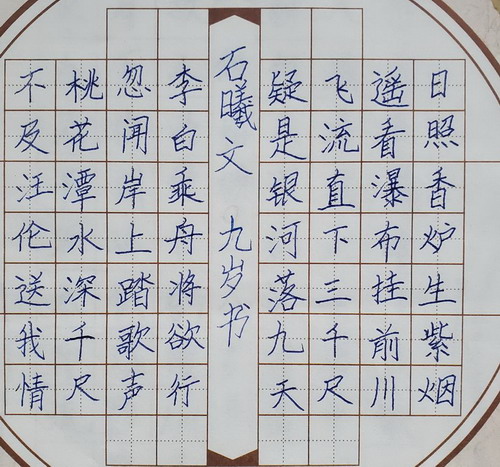 日照香炉生紫烟
遥看瀑布挂前川
飞流直下三千尺
疑是银河落九天
石曦文 九岁书
李白乘舟将欲行
忽闻岸上踏歌声
桃花潭水深千尺
不及汪伦送我情